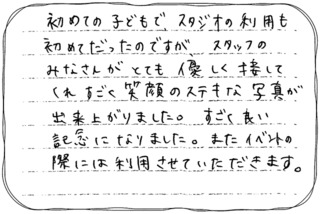 初めての子どもで、スタジオの利用も
初めてだったのですが、スタッフの
みなさんがとても優しく接して
くれすごく笑顔のステキな写真が
出来上がりました。すごく良い
記念になりました。またイベントの
際には利用させていただきます。